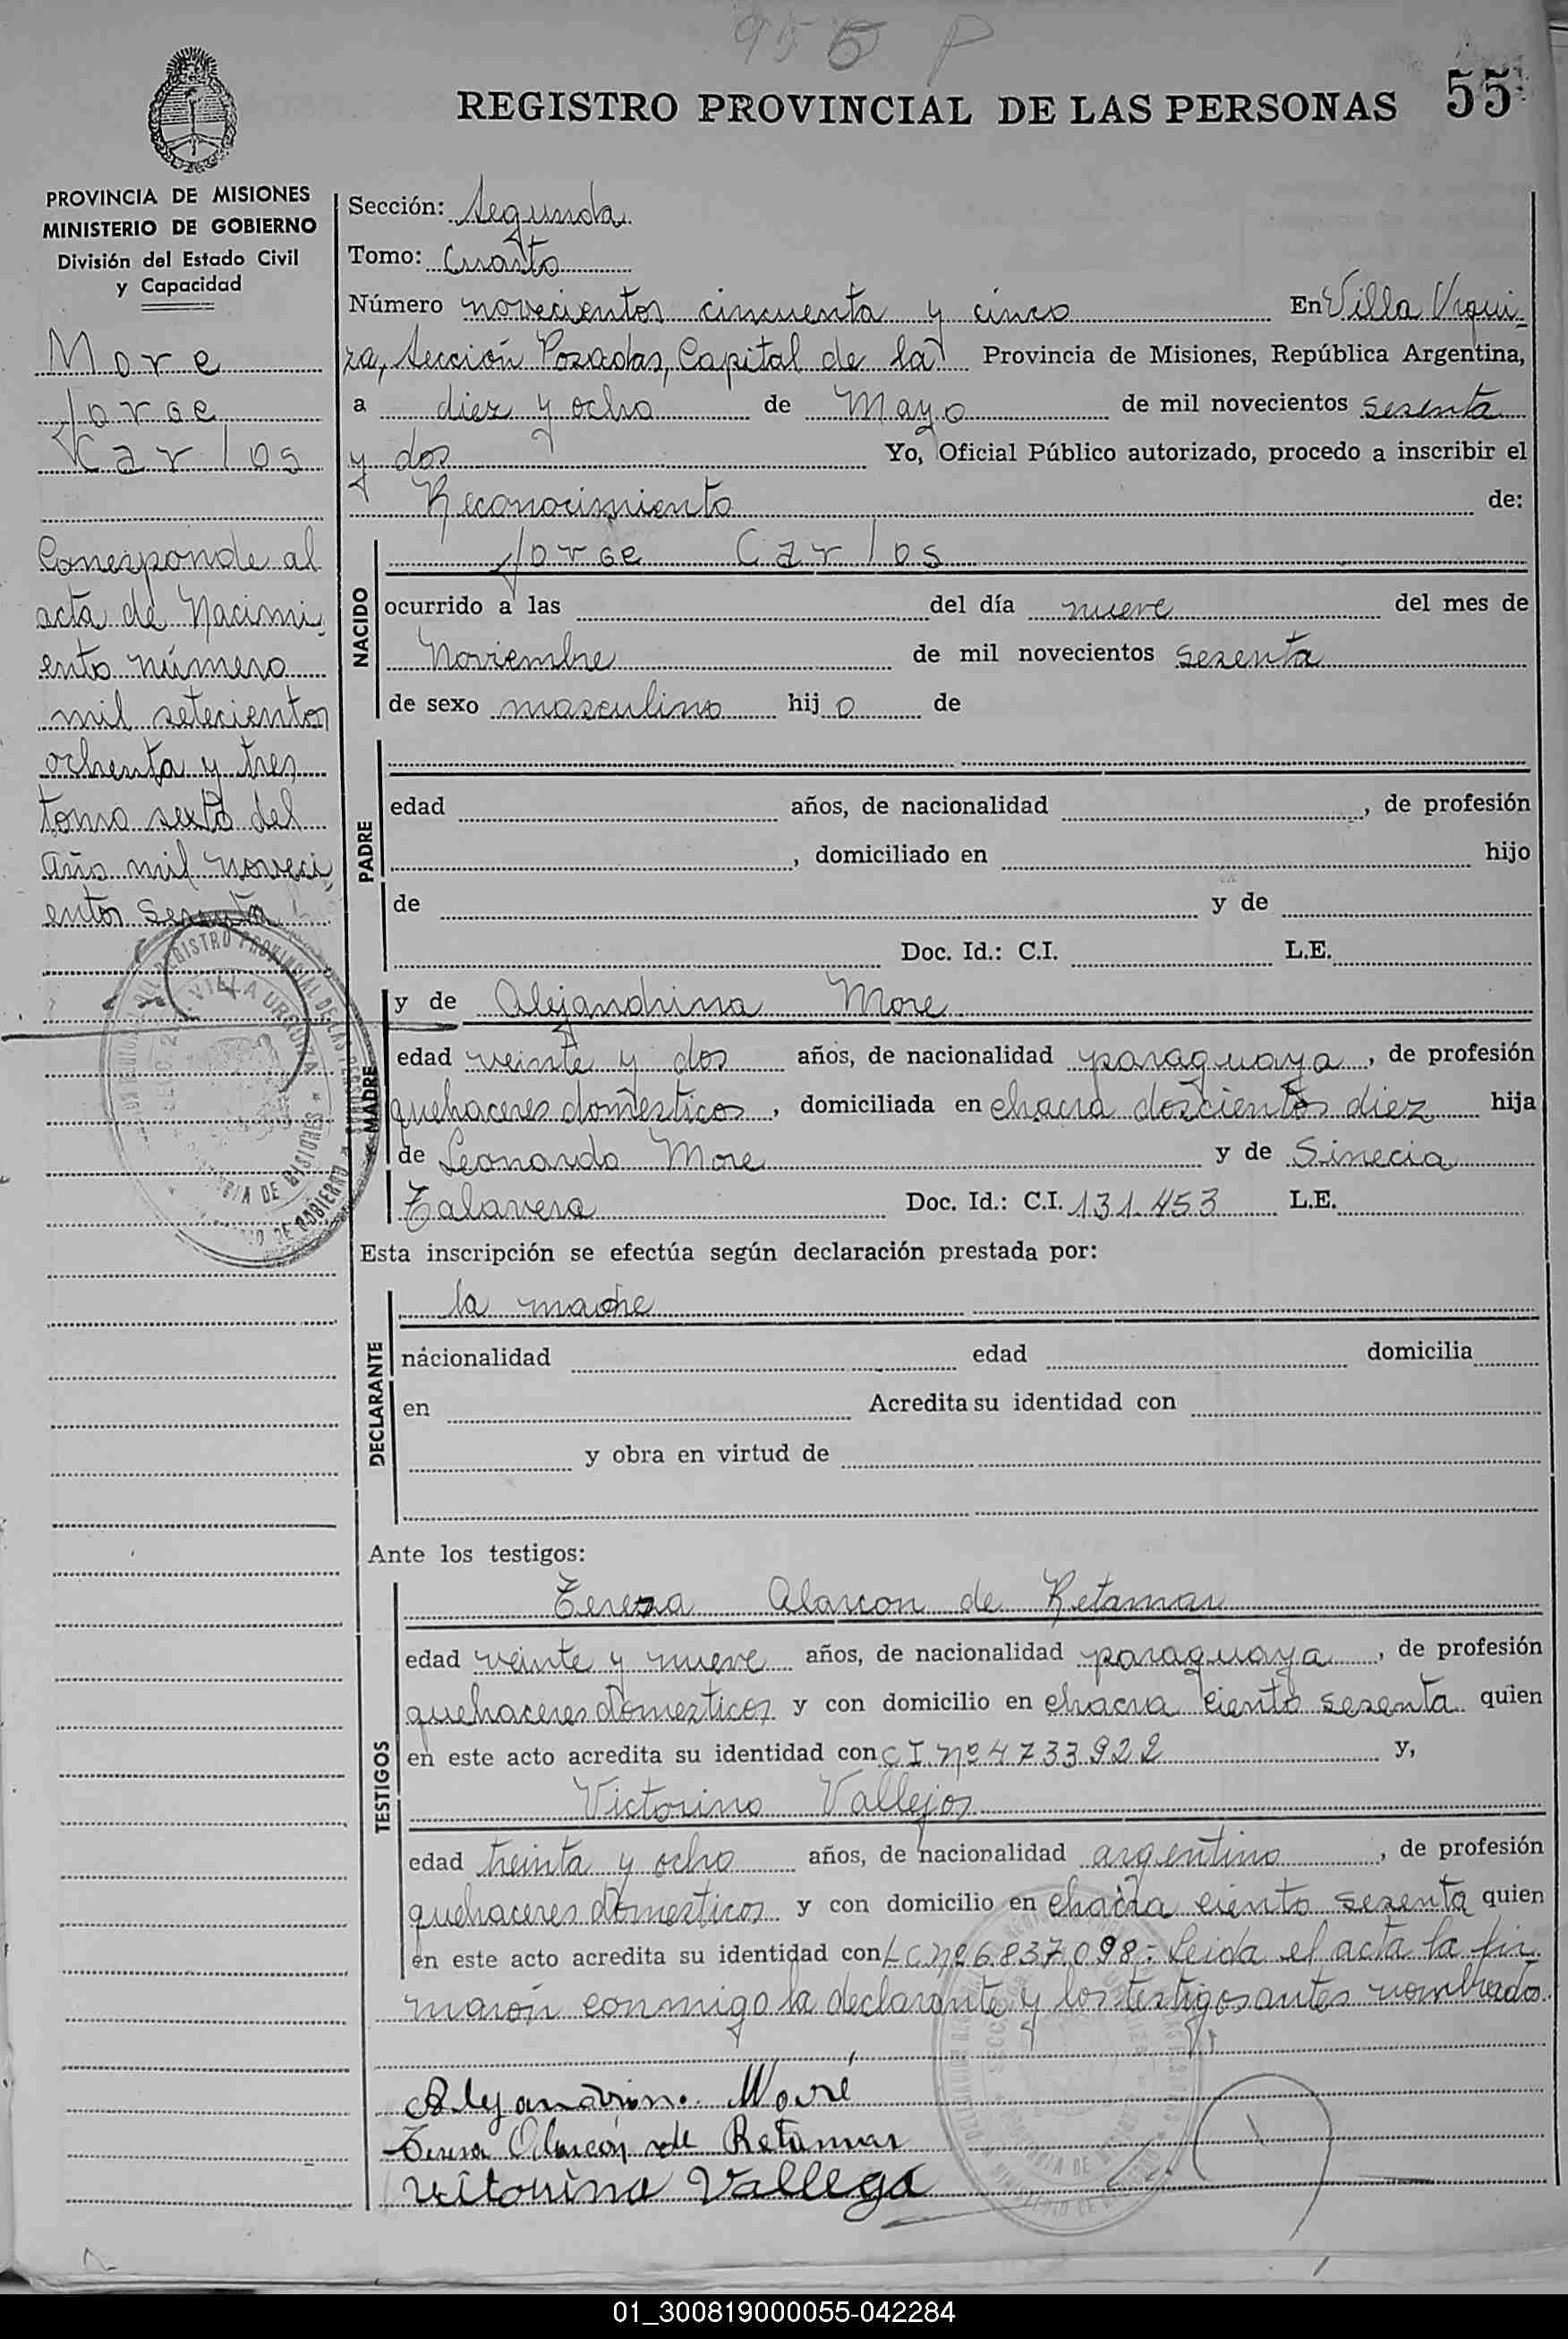 955 P
REGISTRO PROVINCIAL DE LAS PERSONAS 55
PROVINCIA DE MISIONES
MINISTERIO DE GOBIERNO
División del Estado Civil
y Capacidad
More
Jorge
Carlos
Corresponde al
acta de Nacimi-
ento número
mil setecientos
ochenta y tres
tomo sexto del
año mil noveci-
entos sesenta
Sección: Segunda
Tomo: Cuarto
Número novecientos cincuenta y cinco En Villa Urqui-
za, Sección Posadas, Capital de la Provincia de Misiones, República Argentina,
a diez y ocho de Mayo de mil novecientos sesenta
y dos Yo, Oficial Público autorizado, procedo a inscribir el
Reconocimiento de:
NACIDO
Jorge Carlos
ocurrido a las del día nueve del mes de
Noviembre de mil novecientos sesenta
de sexo masculino hijo de
PADRE
edad años, de nacionalidad , de profesión
, domiciliado en hijo
de y de
Doc. Id.: C.I. L.E.
MADRE
y de Alejandrina More
edad veinte y dos años, de nacionalidad paraguaya, de profesión
quehaceres domesticos, domiciliada en chacra doscientos diez hija
de Leonardo More y de Sinecia
Talavera Doc. Id.: C.I. 131.453 L.E.
Esta inscripción se efectúa según declaración prestada por:
DECLARANTE
la madre
nacionalidad edad domicilia
en Acredita su identidad con
y obra en virtud de
Ante los testigos:
TESTIGOS
Teresa Alarcon de Retamar
edad veinte y nueve años, de nacionalidad paraguaya, de profesión
quehaceres domesticos y con domicilio en chacra ciento sesenta quien
en este acto acredita su identidad con C I. Nº 4733922 y,
Victorino Vallejos
edad treinta y ocho años, de nacionalidad argentino, de profesión
quehaceres domesticos y con domicilio en chacra ciento sesenta quien
en este acto acredita su identidad con L C Nº 6.837.098.- Leida el acta la fir-
maron conmigo la declarante y los testigos antes nombrados.
Alejandrina Moré
Teresa Alarcón de Retamar
Vitorina Vallega
01_300819000055-042284